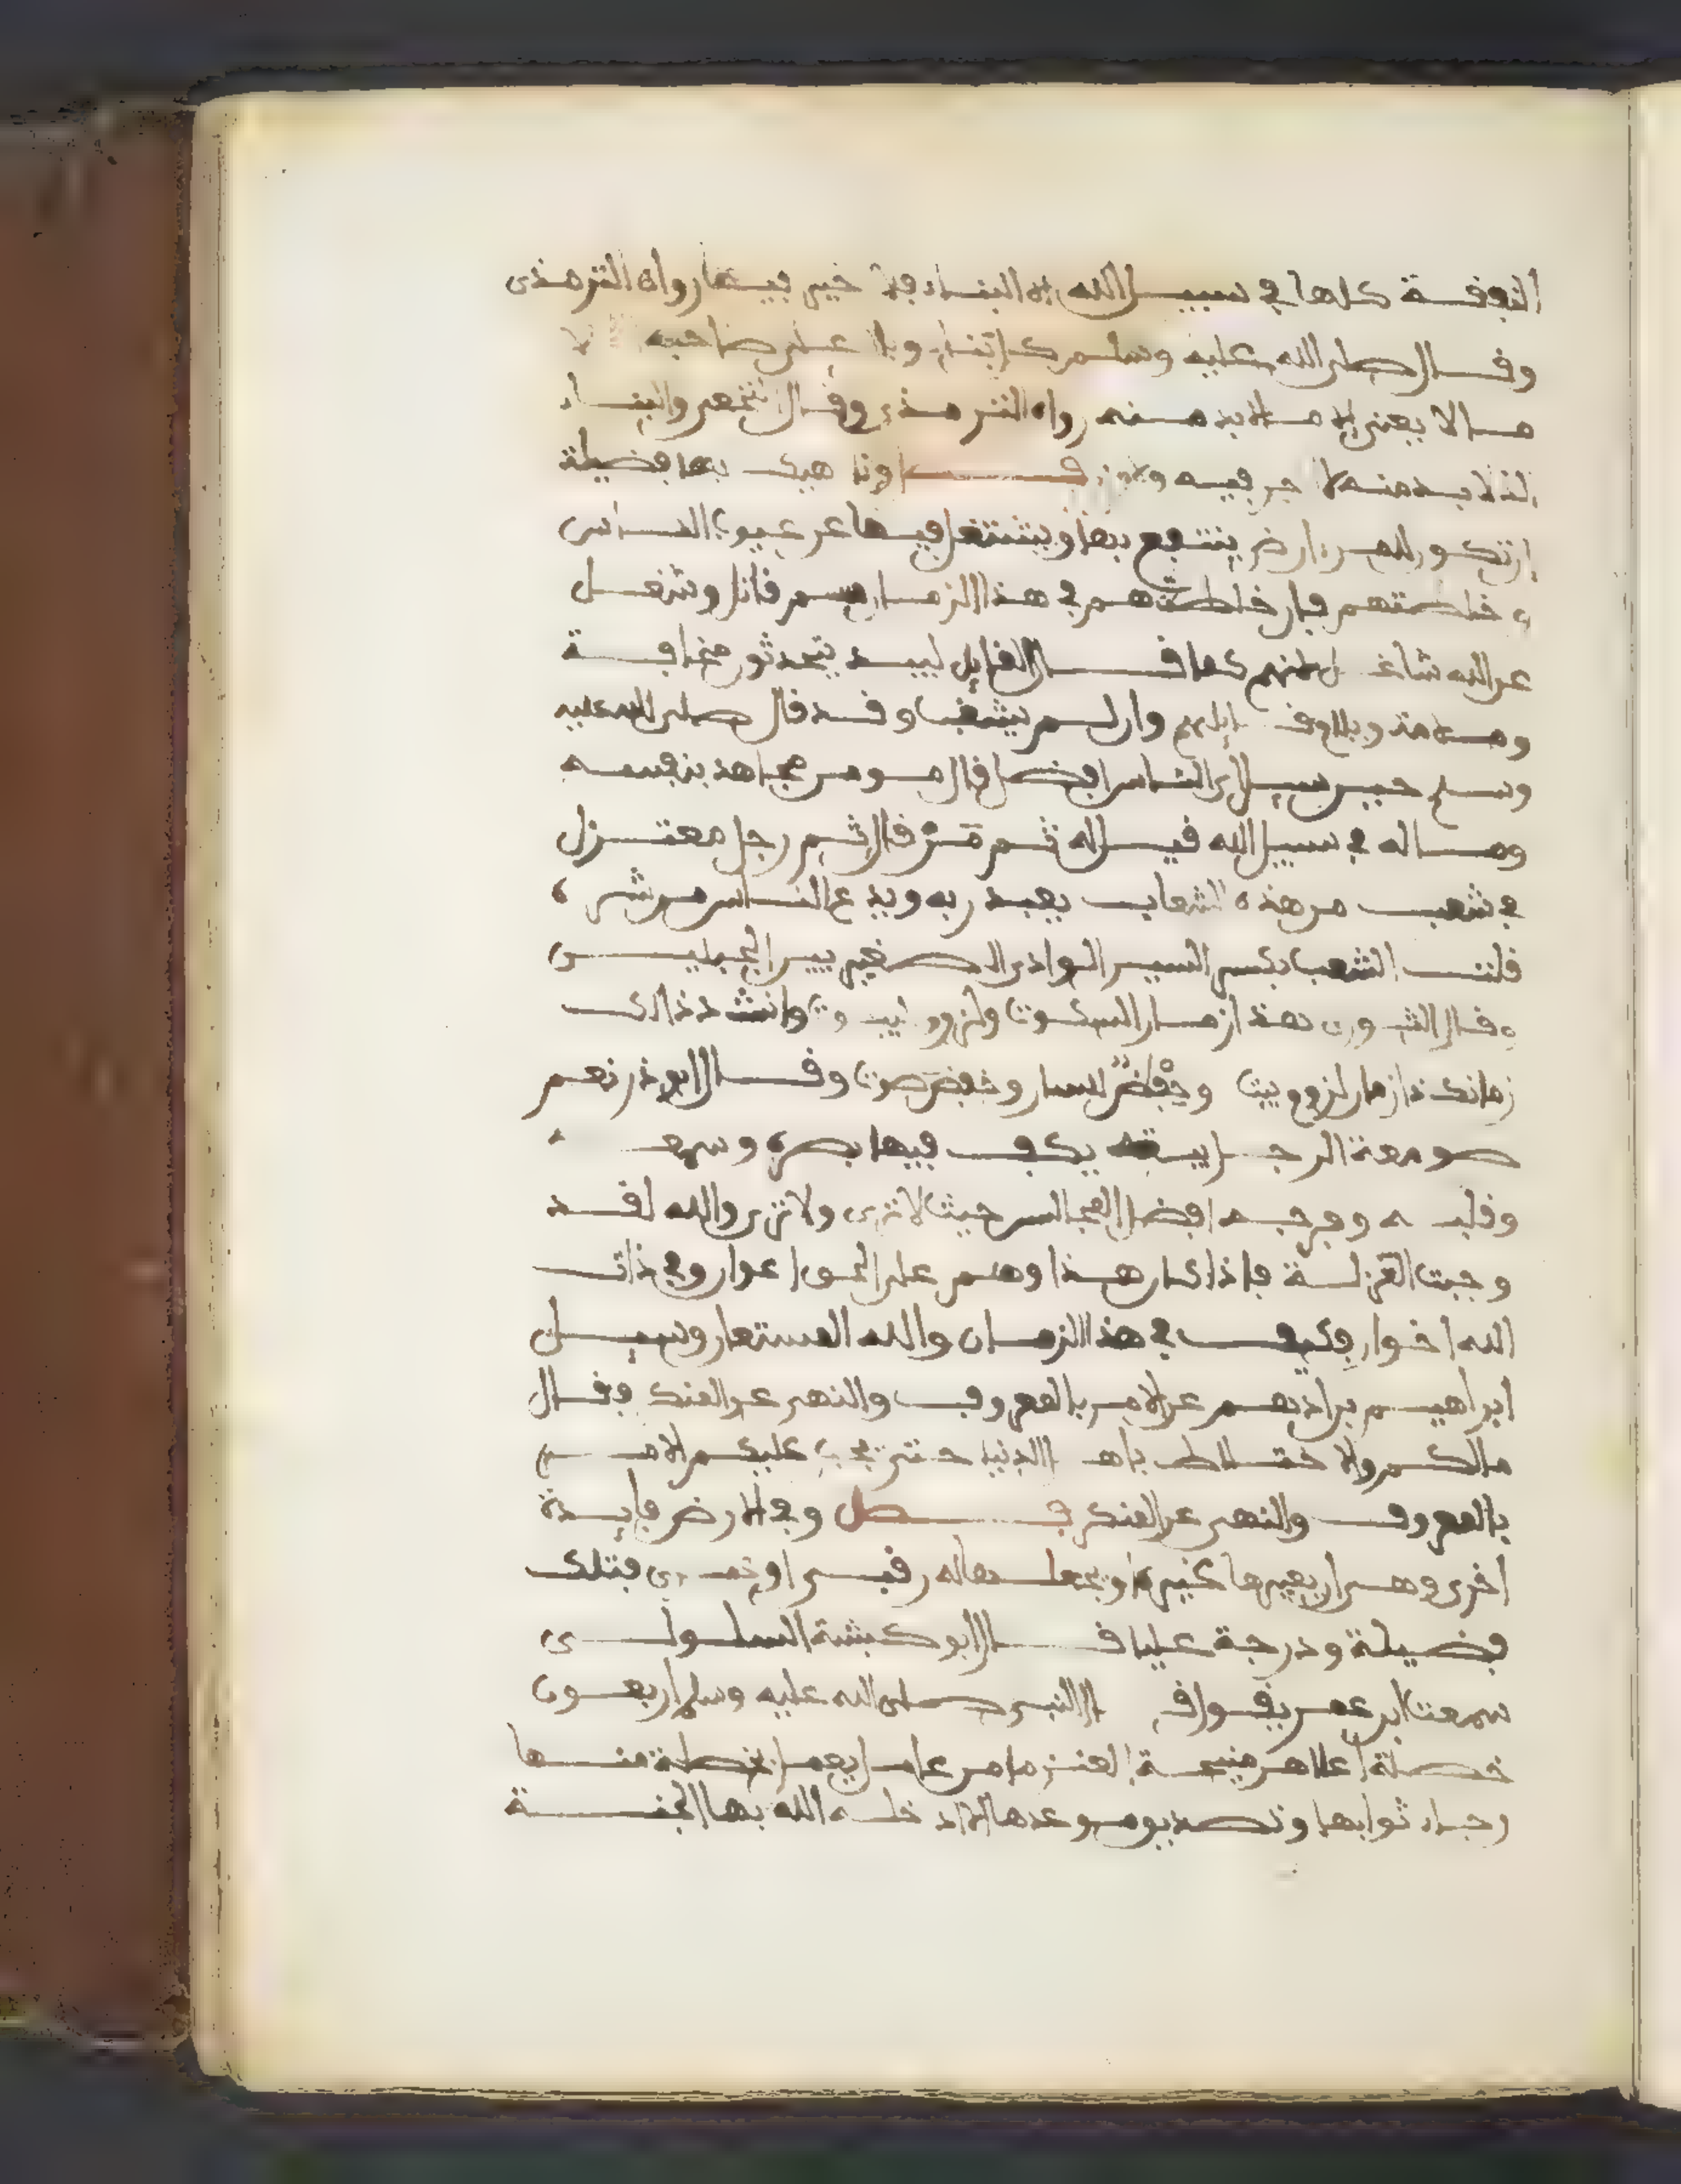 النفقة كلها في سبيل الله إلا البناء فلا خير فيه رواه الترمذي
وقال صلى الله عليه وسلم كل بناء وبال على صاحبه إلا
ما لا يعني إلا ما لا بد منه رواه الترمذي وقال النخعي والبناء
الذي لا بد منه لا أجر فيه ولا وزر وناهيك بها فضيلة
أن تكون للمرء أرض ينتفع بها ويشتغل فيها عن عيوب الناس
وخلطتهم فإن خلطتهم في هذا الزمان سم قاتل وشغل
عن الله شاغل لكنهم كما قال القائل لبيد يتحدثون مخافة
وملامة ويلام قائلهم وإن لم يشغب وقد قال صلى الله عليه
وسلم حين سيل أي الناس أفضل قال مومن مجاهد بنفسه
وماله في سبيل الله قيل له ثم من قال ثم رجل معتزل
في شعب من هذه الشعاب يعبد ربه ويدع الناس من شره
قلت الشعب بكسر الشين الوادي الصغير بين الجبلين
وقال الثوري هذا زمان السكوت ولزوم البيوت وانشد ذالك
زمانك ذا زمان لزوم بيت وحفظ للسان وخفض صوت وقال ابو ذر نعم
صومعة الرجل بيته يكف فيها بصره وسمعه
وقلبه وفرجه افضل المجالس حيث لا ترى ولا ترى والله لقد
وجبت العزلة فاذا كان هذا وهم على الحق اعوان وفي ذات
الله اخوان فكيف في هذا الزمان والله المستعان وسيل
ابراهيم بن ادهم عن الامر بالمعروف والنهي عن المنكر فقال
مالكم والاختلاط باهل الدنيا حتى يجب عليكم الامر
بالمعروف والنهي عن المنكر فصل وفي الارض فايدة
اخرى وهي ان يعيرها لغيره او يجعلها له رقبى او عمرى فتلك
فضيلة ودرجة عليا قال ابو كبشة السلولي
سمعت ابن عمر يقول قال النبي صلى الله عليه وسلم اربعون
خصلة اعلاهن منيحة العنز ما من عامل يعمل بخصلة منها
رجاء ثوابها وتصديق موعدها الا ادخله الله بها الجنة